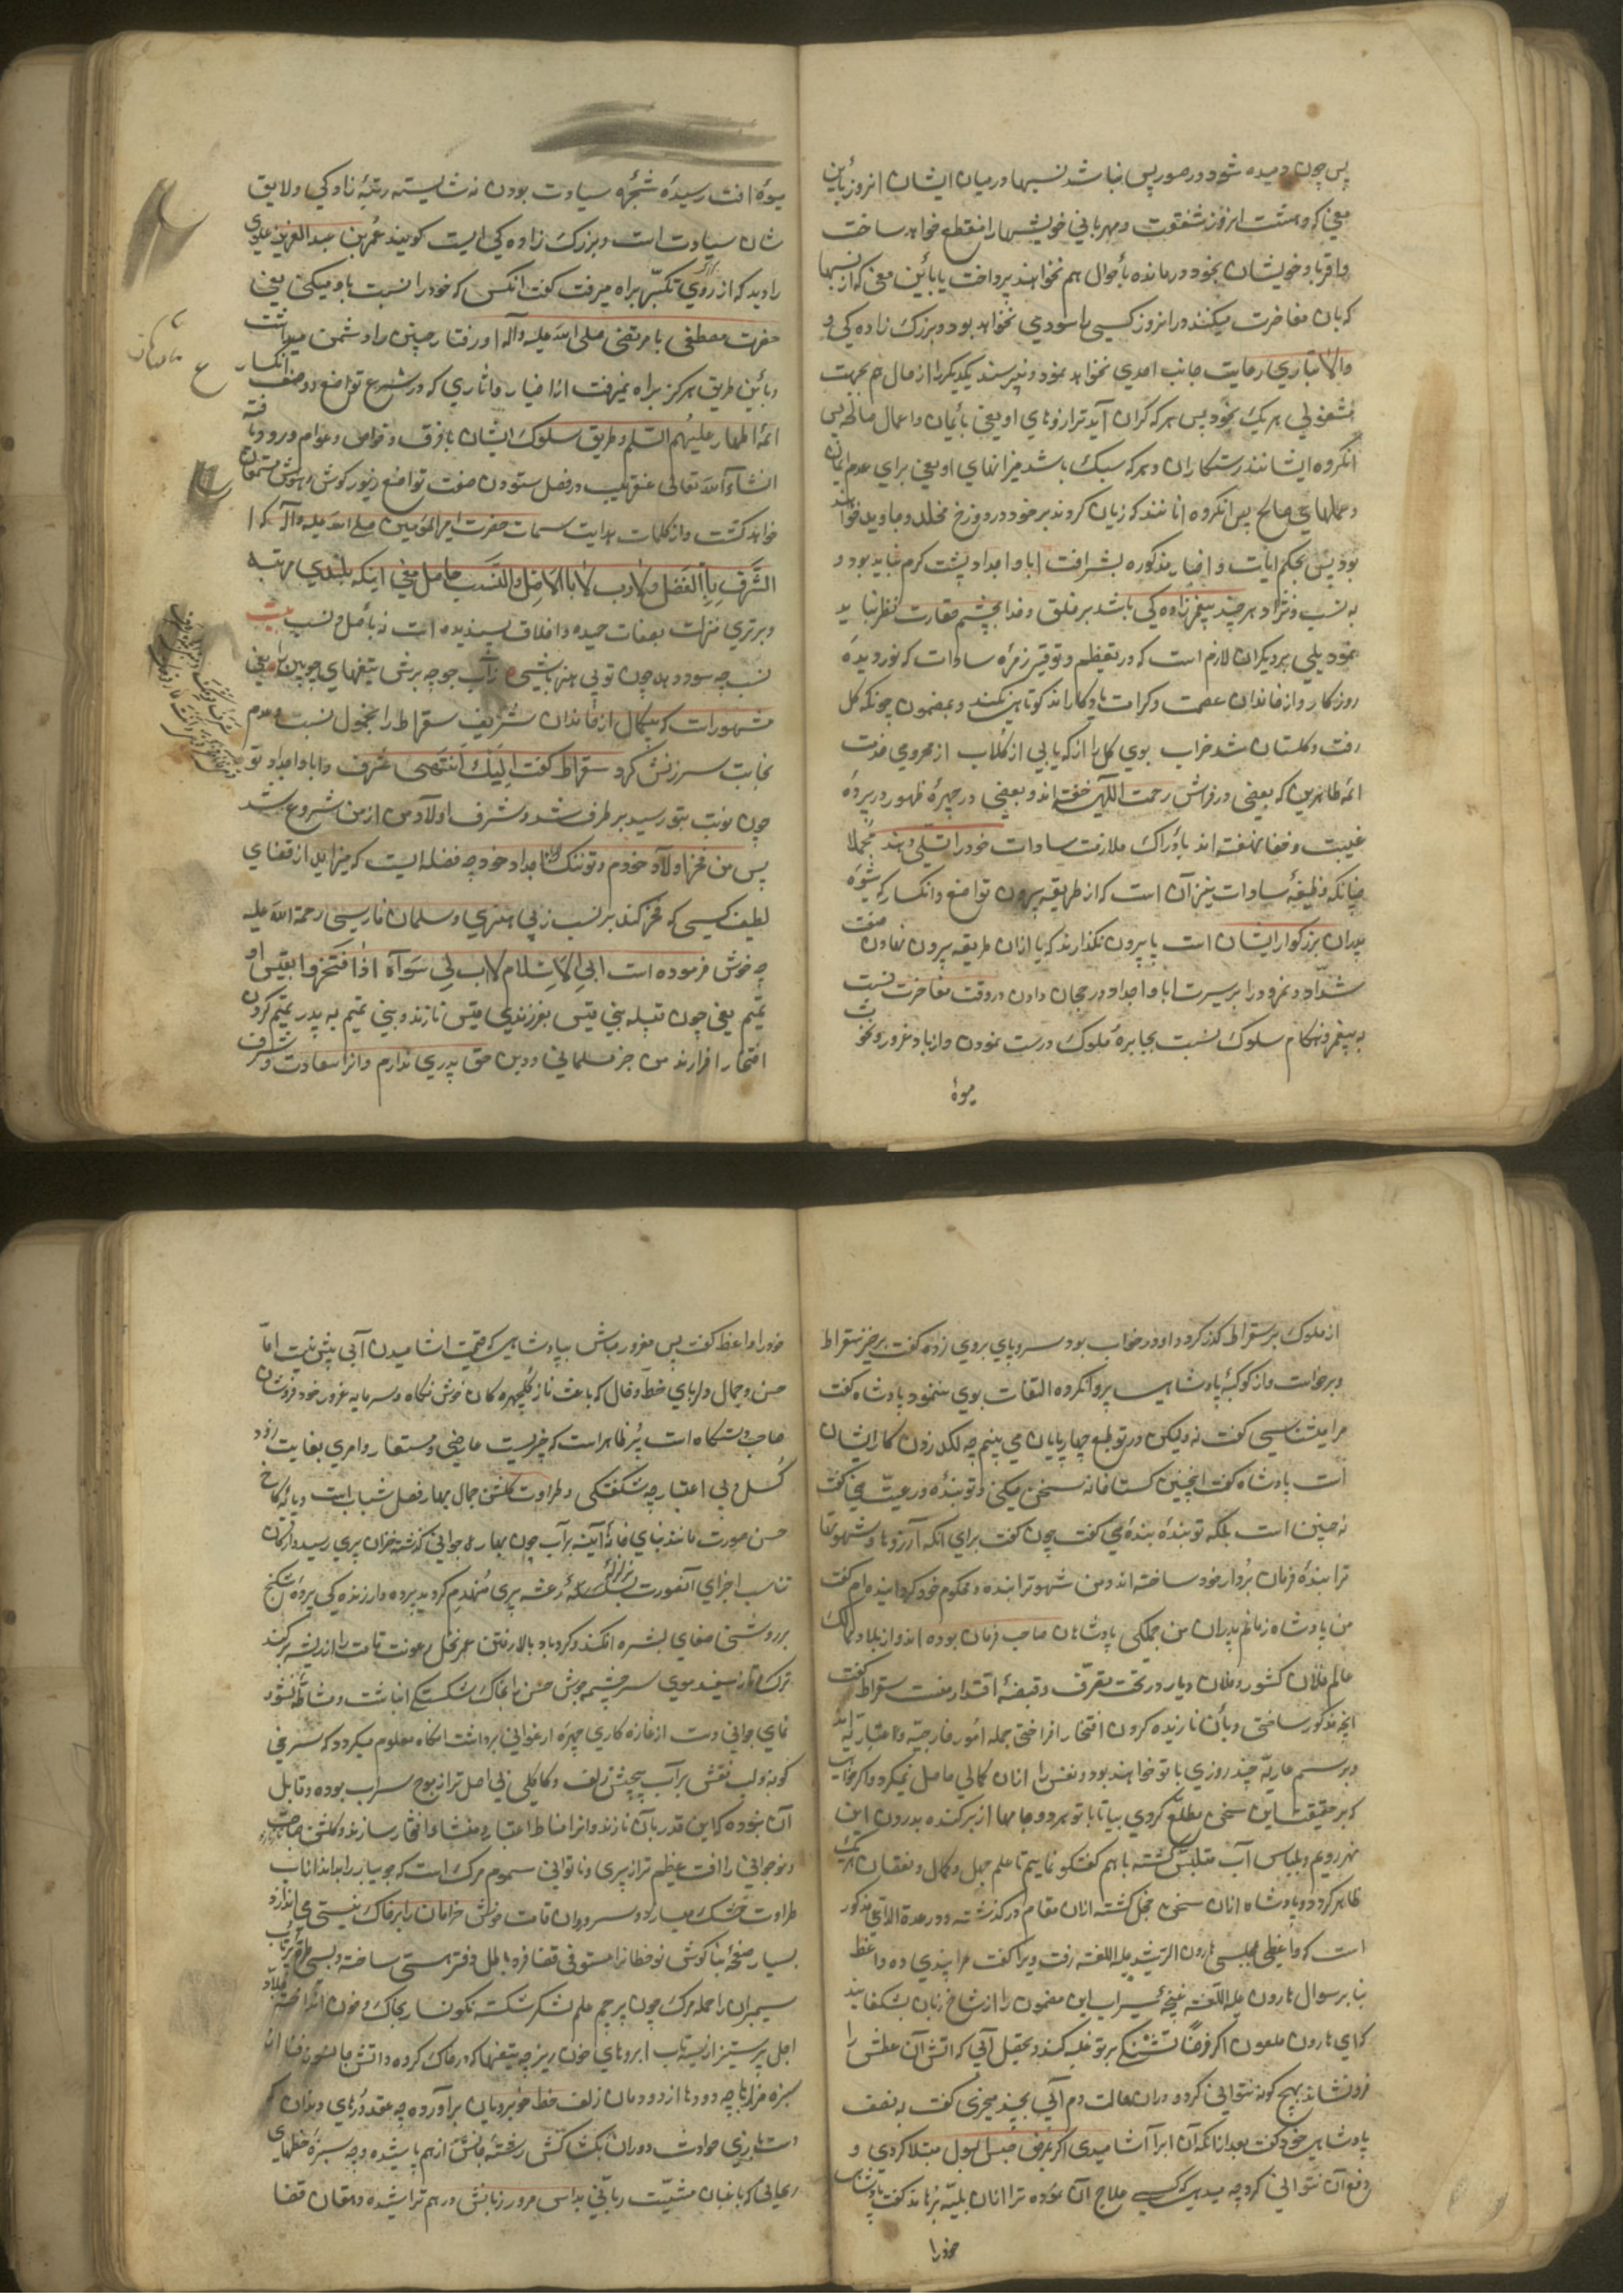 پس چون دمیده شود در صور پس نباشد نسبها در میان ایشان انروز باین
معنی که وهشت انروز شفقت و مهربانی خویشیها را منقطع خواهد ساخت
واقربا و خویشان بخود درمانده بأحوال هم نخواهند پرداخت یا باین معنی که از نسبها
که بان مفاخرت میکنند در انروز کسی را سودی نخواهد بود و بزرک زاده کی و
والا تباری رعایت جانب احدی نخواهد نمود و نپرسند یکدیکر را از حال هم بجهت
مشغولی هر یک بخود پس هر که کران آید ترازوهای او یعنی بأیمان و اعمال صالحه پس
انکروه ایشانند رستکاران و هر که سبک باشد میزانهای او یعنی برای عدم ایمان
و عملهای صالح پس انکروه انانند که زیان کردند بر خود در دوزخ مخلد و جاوید خواهند
بود پس بحکم ایات و اخبار مذکوره بشرافت ابا و اجداد پشت کرم نباید بود و
به نسب و نژاد هر چند پیغمبرزاده کی باشد بر خلق خدا بچشم حقارت نظر نباید
نمود بلی بر دیکران لازم است که در تعظیم و توقیر زمرهٔ سادات که نور دیدهٔ
روزکار و از خاندان عصمت و کرامت یادکاراند کوتاهی نکنند و بمضمون چونکه کل
رفت و کلستان شد خراب بوی کل را از که یابی از کلاب از محرومی خدمت
ائمه طاهرین که بعضی در فراش رحمت اللهی خفته اند و بعضی در چهرهٔ ظهور در پردهٔ
غیبت و خفا نهفته اند بأدراک ملازمت سادات خود را تسلی دهند مجملا
چنانکه وظیفهٔ سادات نیز آن است که از طریقه پیرون تواضع و انکسار که شیوهٔ
پدران بزرکوار ایشان است پا بیرون نکذارند که پا از ان طریقه بیرون نهادن صفت
شداد و نمرود را بر سیرت ابا و اجداد رجحان دادن در وقت مفاخرت نسبت
به پیغمبر و هنکام سلوک نسبت بجبابرهٔ ملوک درست نمودن و از باد غرور و نخوت
میوهٔ
میوهٔ افت رسیدهٔ شجرهٔ سیادت بودن نه شایسته رتبهٔ زاده کی و لایق
شان سیادت است و بزرک زاده کی ایست کویند عمر بن عبدالعزیز علوی
را دید که از روی تکبر براه میرفت کفت انکس که خود را نسبت باو میکنی یعنی
حضرت مصطفی یا مرتضی صلی الله علیه وآله او رفتار چنین را دشمن میداشت
و باین طریق هرکز براه نمیرفت از اخبار و اثاری که در شرع تواضع و وصف انکسار
ائمهٔ اطهار علیهم السلم و طریق سلوک ایشان با فرق و خواص و عوام ورود یافته
انشاءالله تعالی عنقریب در فصل ستودن صفت تواضع زیور کوش و هوش مستمعان
خواهد کشت و از کلمات هدایت سمات حضرت امیر المؤمنین صلی الله علیه وآله که
الشرف بالفضل والادب لا بالاصل والنسب حاصل معنی اینکه بلندی مرتبه
و برتری منزلت بصفات حمیده و اخلاق پسندیده است نه بأصل و نسب بیت
نسب چه سود دهد چون تو بی هنر باشی ز آب جو چه برش تیغهای چوپین را یعنی
مشهور است که یکی از خاندان شریف سقراط را بخمول نسبت و عدم
نجابت سرزنش کرد سقراط کفت الیک انتهی شرف و ابا و اجداد تو
چون نوبت بتو رسید بر طرف شد و شرف اولاد من از من شروع شد
پس من فخر اولاد خودم و تو ننک اجداد خود چه فضله ایست که میزاید از قضای
لطیف کسی که فخر کند بر نسب ز بی هنری و سلمان فارسی رحمة الله علیه
چه خوش فرموده است ابی الاسلام لا اب لی سواه اذا افتخروا بقیس او
تمیم یعنی چون قبیله بنی قیس بفرزندی قیس نازند و بنی تمیم به پدر تمیم کردن
افتخار افرازند من جز مسلمانی و دین حق پدری ندارم و انرا سعادت و شرف
از ملوک بر سقراط کذر کرد و او در خواب بود سر و پای بروی زده کفت برخیز سقراط
و برخاست و از کوکبهٔ پادشاهی پروا نکرده التفات بوی ننمود پادشاه کفت
مرا میشناسی کفت نه ولیکن در تو طبع چهارپایان می بینم چه لکد زدن کار ایشان
است پادشاه کفت اینچنین کستاخانه سخن میکنی و تو بنده و رعیت منی کفت
نه چنین است بلکه تو بندهٔ بندهٔ منی کفت چون کفت برای انکه آرزوها و شهوتها
ترا بندهٔ فرمان بردار خود ساخته اند و من شهوترا بنده و محکوم خود کردانیده ام کفت
من پادشاه زمانم پدران من جملکی پادشاهان صاحب فرمان بوده اند و از بلاد و ممالک
عالم فلان کشور و فلان دیار در تحت تصرف و قبضهٔ اقتدار منست سقراط کفت
انچه مذکور ساختی و بأن نازیده کردن افتخار افراختی جمله امور خارجیه و اعتباریه اند
و برسم عاریه چند روزی با تو خواهند بود و نفس را ازان کمالی حاصل نمیکردد و اکر خواهی
که بر حقیقت این سخن مطلع کردی بیا تا با تو هر دو جامها از بر کنده بدرون این
نهر رویم و بلباس آب متلبس کشته با هم کفتکو نماییم تا علم و جهل و کمال و نقصان هر یک
ظاهر کردد و پادشاه ازان سخن خجل کشته ازان مقام در کذشته و در عدة الداعی مذکور
است که واعظی بمجلس هارون الرشید علیه اللعنه رفت ویرا کفت مرا پندی ده واعظ
بنا بر سوال هارون علیه اللعنه غنچهٔ سیراب این مضمون را از شاخ زبان بشکفانید
که ای هارون ملعون اکر فرضا تشنکی بر تو غلبه کند و تحصیل آبی که اتش آن عطش را
فرو نشاند بهیچ کونه نتوانی کرد و دران حالت دم آبی بچند میخری کفت به نصف
پادشاهی خود کفت بعد ازانکه آن ابرا آشامیدی اکر بمرض حبس البول مبتلا کردی و
دفع آن نتوانی کرد چه میدهی که کسی علاج آن نموده ترا ازان بلیه برهاند کفت پادشاهی
خود را
خود را واعظ کفت پس مغرور مباش بپادشاهی که قیمت اشامیدن آبی بیش نیست اما
حسن و جمال دلربای خط و خال که باعث ناز کلچهره کان خوش نکاه و سرمایه غرور خود فروشان
صاحب دستکاه است پر ظاهر است که چیزیست عارضی و مستعار و امری بغایت زود
کسل و بی اعتبار چه شکفتکی و طراوت کلشن جمال بهار فصل شباب است و پایهٔ کاخ
حسن صورت مانند بنای خانهٔ آینه بر آب چون بهار جوانی کذشته خزان پیری رسید و ارکان
تناسب اجزای آنصورت بزلزلهٔ رعشه پیری منهدم کردید پرده دار زنده کی پردهٔ شکنج
بر روشنی صفای بشره افکند و کردباد بالا رفتن عمر نخل رعونت قامت را از ریشه بر کند
ترک تاز سفید موی سر چشمه جوش حسن را بخاک شکستکی انباشت و مشاطهٔ نشو و
نمای جوانی دست از غازه کاری چهرهٔ ارغوانی برداشت انکاه معلوم میکردد که سرخی
کونه و لب نقش بر آب پیچش زلف و کاکل بی اصل تر از موج سراب بوده و قابل
آن نبوده که این قدر بان نازند و انرا مناط اعتبار و منشا افتخار سازند و کلشن
و نوجوانی را افت عظیم تر از پیری و ناتوانی سموم مرک است که جویبار را بدانداناب
طراوت خشک میسازد و سرو روان قامت خوش خرامان را بر خاک نیستی می اندازد
بسیار صفحهٔ بناکوش نوخطانرا مستوفی قضا فرد باطل دفتر هستی ساخته و بسی طرهٔ پر تاب
سیمبران را حمله مرک چون پرچم علم لشکر شکسته نکونسار بخاک و خون انداخته جلاد
اجل پر ستیز از نیست تاب ابروهای خون ریز چه تیغها که در خاک کرده و اتش جانسوز فنا از
سبزه مزارها چه دودها از دودمان زلف و خط خوبرویان برآورده چه عقد درهای دندان
دست بازی حوادث دوران بکشاکش رشته جانش از هم پاشیده و چه سبزهٔ خطهای
ریحانی که باغبان مشیت ربانی بداس مرور زمانش در هم تراشیده دهقان قضا